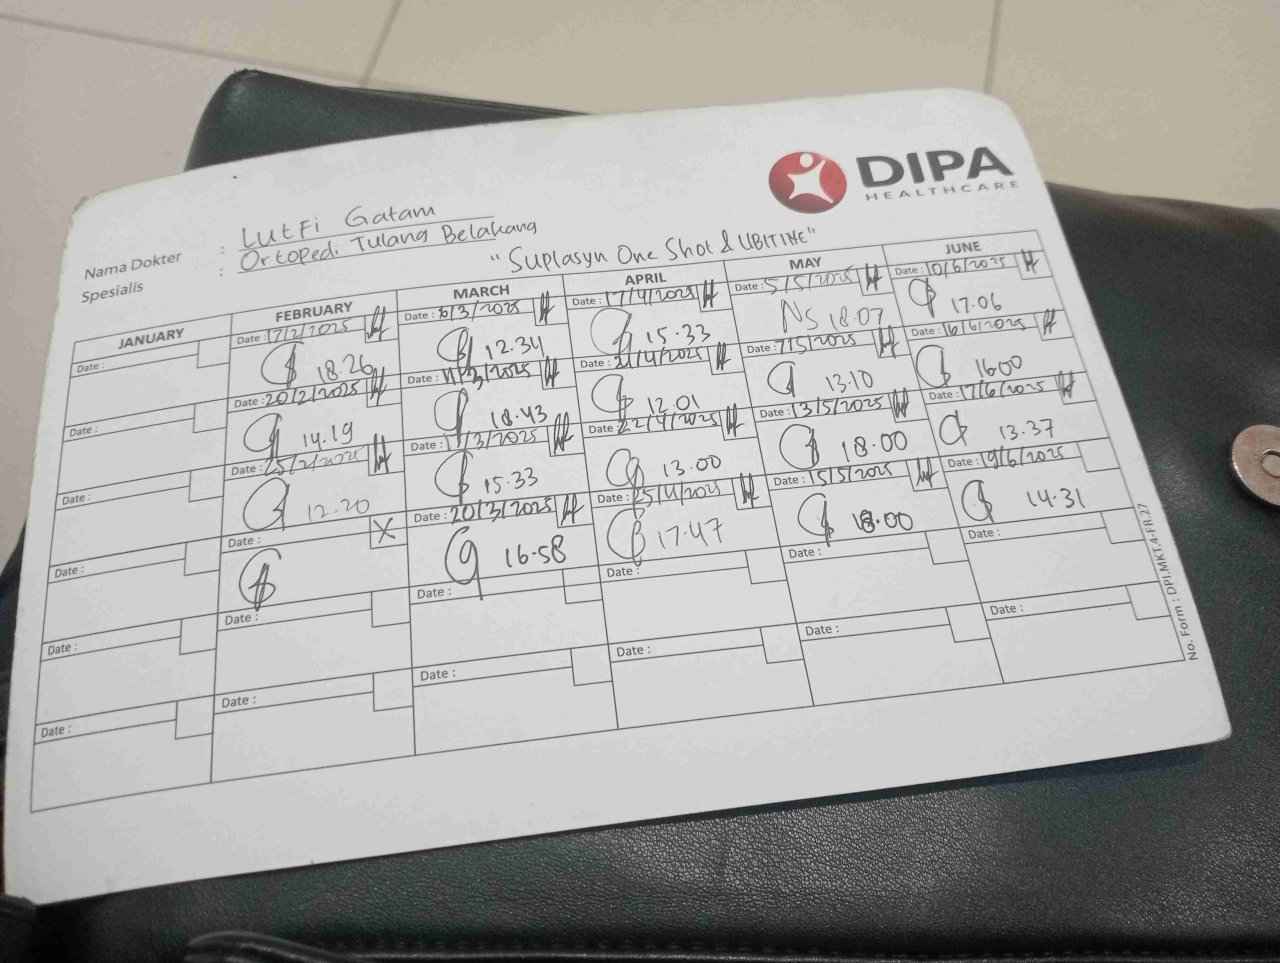 DIPA
HEALTHCARE
Nama Dokter : LUtFi Gatam
Spesialis : Ortopedi Tulang Belakang
"Suplasyn One Shot & UBITINE"
JANUARY
Date :
Date :
Date :
Date :
Date :
Date :
FEBRUARY
Date : 17/2/2025
18.26
Date : 20/2/2025
14.19
Date : 25/2/2025
12.20
Date : X
Date :
Date :
MARCH
Date : 6/3/2025
12.34
Date : 11/3/2025
18.43
Date : /3/2025
15.33
Date : 20/3/2025
16.58
Date :
Date :
APRIL
Date : 17/4/2025
15.33
Date : 21/4/2025
12.01
Date : 22/4/2025
13.00
Date : 25/4/2025
17.47
Date :
Date :
MAY
Date : 5/5/2025
NS 18.07
Date : 7/5/2025
13.10
Date : 13/5/2025
18.00
Date : 15/5/2025
18.00
Date :
Date :
JUNE
Date : 10/6/2025
17.06
Date : 16/6/2025
1600
Date : 17/6/2025
13.37
Date : 19/6/2025
14.31
Date :
Date :
No. Form : DPI.MKT.4-FR.27